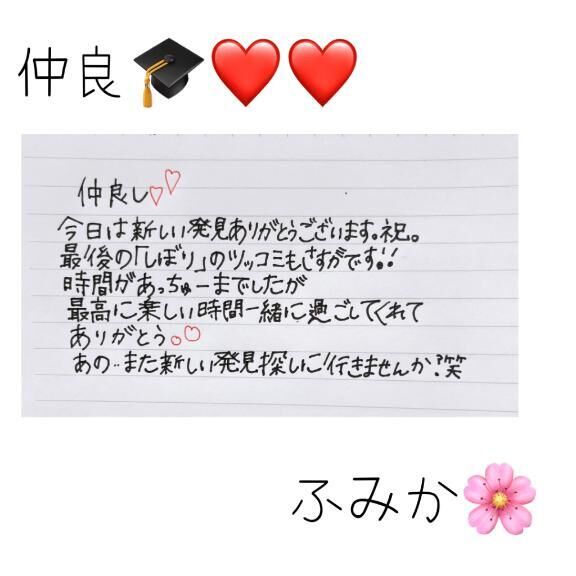 仲良🎓❤️❤️
仲良し♡♡
今日は新しい発見ありがとうございます。祝。
最後の「しぼり」のツッコミもさすがです!!
時間があっちゅーまでしたが
最高に楽しい時間一緒に過ごしてくれて
ありがとう。♡
あの..また新しい発見探しに行きませんか?笑
ふみか🌸